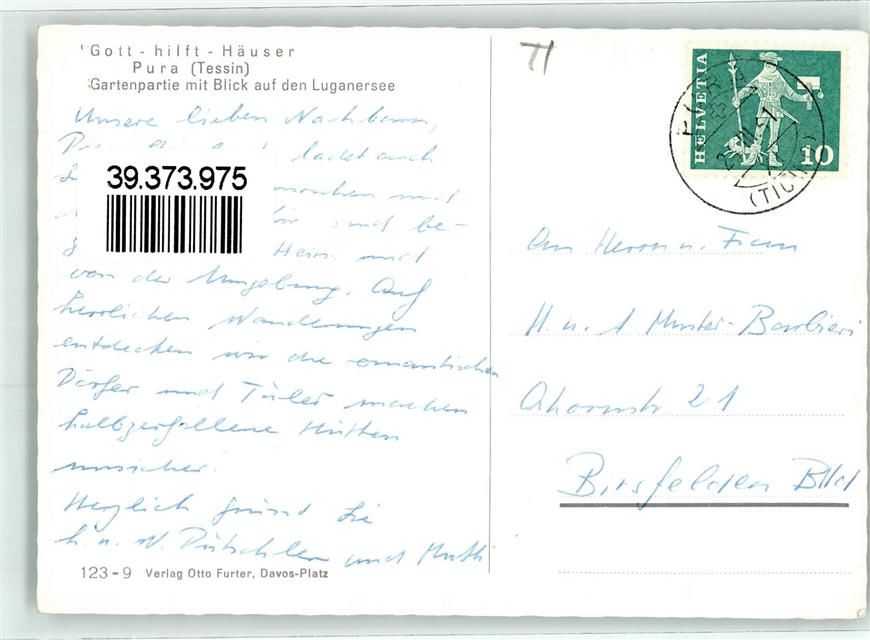 Gott - hilft - Häuser
Pura (Tessin)
Gartenpartie mit Blick auf den Luganersee
Unsere lieben Nachbarn,
ladet auch
39.373.975
und
und be-
Heim und
von der Umgebung. Auf
herrlichen Wanderungen
entdecken wir die romantischen
Dörfer und Täler machen
halbzerfallene Hütten
unsicher.
Herzlich grüsst Sie
h. u. W. und
123-9 Verlag Otto Furter, Davos-Platz
HELVETIA
10
PURA
(TICINO)
An Herrn u. Frau
H. u. Muster-Barbieri
Ahornstr 21
Birsfelden Blld